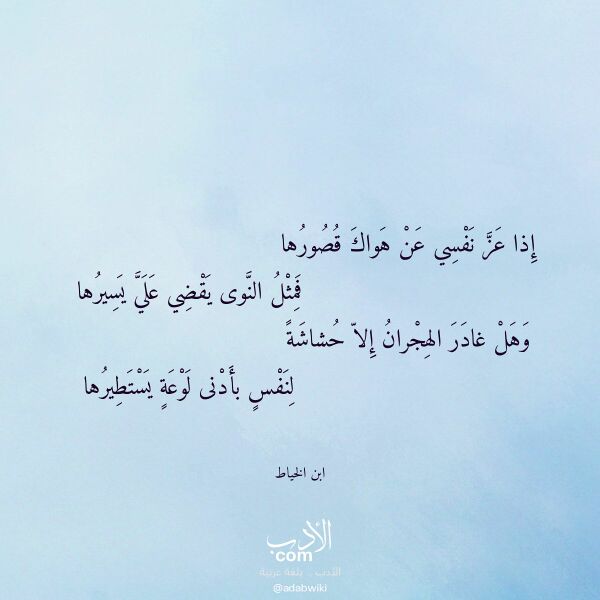 إِذا عَزَّ نَفْسِي عَنْ هَواكَ قُصُورُها
فَمِثْلُ النَّوى يَقْضِي عَلَيَّ يَسِيرُها
وَهَلْ غادَرَ الهِجْرانُ إِلاّ حُشاشَةً
لِنَفْسٍ بأَدْنى لَوْعَةٍ يَسْتَطِيرُها
ابن الخياط
الأدب
com
الأدب .. بلغة عربية
@adabwiki